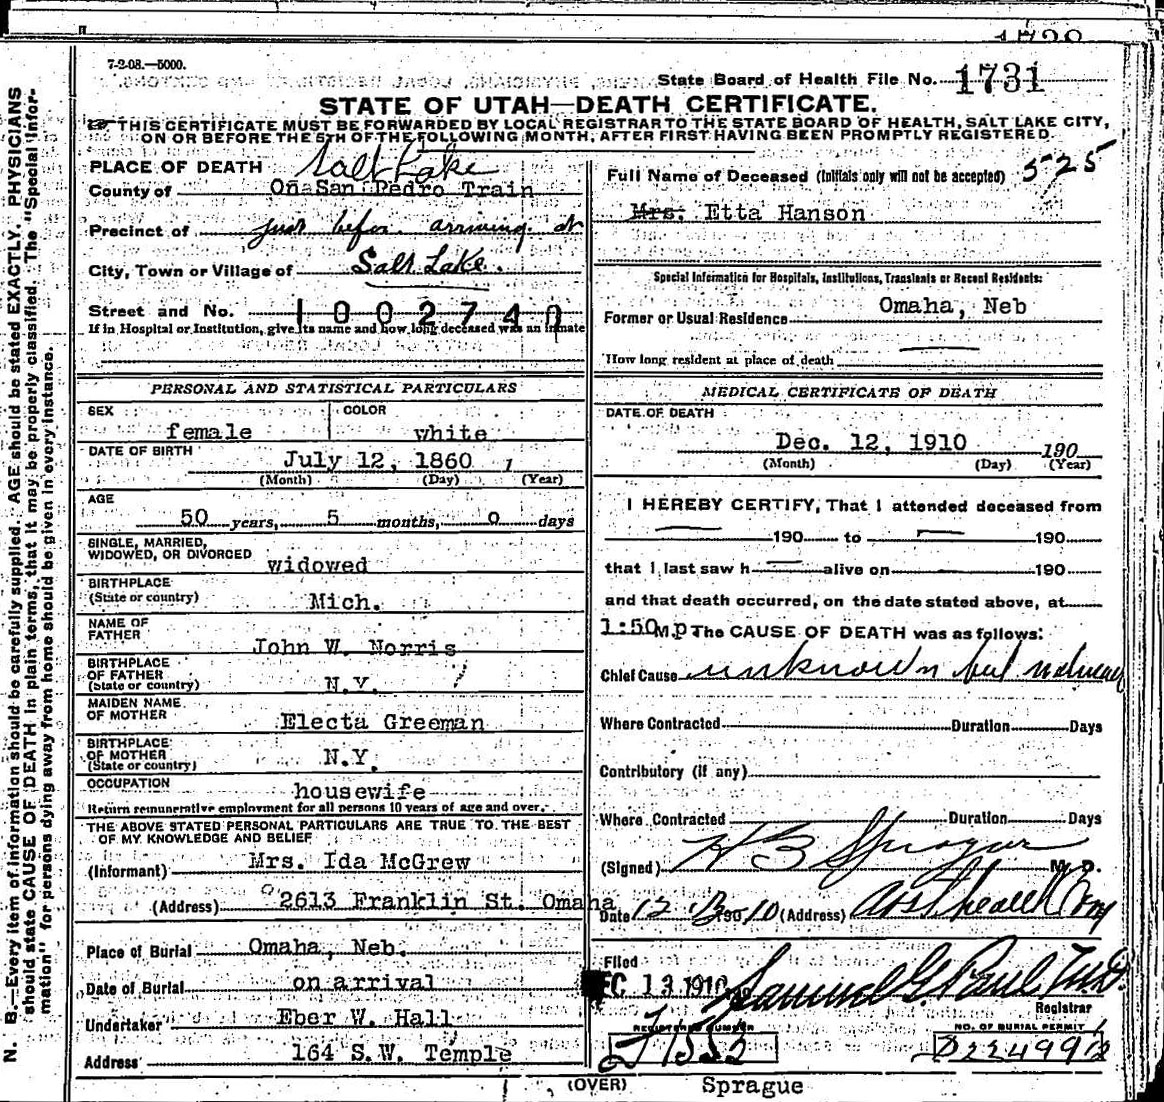 7-2-08.—5000.
State Board of Health File No. 1731
STATE OF UTAH—DEATH CERTIFICATE.
THIS CERTIFICATE MUST BE FORWARDED BY LOCAL REGISTRAR TO THE STATE BOARD OF HEALTH, SALT LAKE CITY,
ON OR BEFORE THE 5TH OF THE FOLLOWING MONTH, AFTER FIRST HAVING BEEN PROMPTLY REGISTERED.
N. B.—Every item of information should be carefully supplied. AGE should be stated EXACTLY. PHYSICIANS
should state CAUSE OF DEATH in plain terms, that it may be properly classified. The "Special Infor-
mation" for persons dying away from home should be given in every instance.
PLACE OF DEATH Salt Lake
County of On a San Pedro Train
Precinct of just before arriving at
City, Town or Village of Salt Lake.
Street and No. 1002740
If in Hospital or Institution, give its name and how long deceased was an inmate
PERSONAL AND STATISTICAL PARTICULARS
SEX female COLOR white
DATE OF BIRTH July 12, 1860
(Month) (Day) (Year)
AGE
50 years, 5 months, 0 days
SINGLE, MARRIED,
WIDOWED, OR DIVORCED widowed
BIRTHPLACE
(State or country) Mich.
NAME OF
FATHER John W. Norris
BIRTHPLACE
OF FATHER
(State or country) N.Y.
MAIDEN NAME
OF MOTHER Electa Greeman
BIRTHPLACE
OF MOTHER
(State or country) N.Y.
OCCUPATION housewife
Return remunerative employment for all persons 10 years of age and over.
THE ABOVE STATED PERSONAL PARTICULARS ARE TRUE TO THE BEST
OF MY KNOWLEDGE AND BELIEF
(Informant) Mrs. Ida McGrew
(Address) 2613 Franklin St. Omaha
Place of Burial Omaha, Neb.
Date of Burial on arrival
Undertaker Eber W. Hall
Address 164 S.W. Temple
Full Name of Deceased (Initials only will not be accepted) 525
Mrs. Etta Hanson
Special Information for Hospitals, Institutions, Transients or Recent Residents:
Former or Usual Residence Omaha, Neb
How long resident at place of death
MEDICAL CERTIFICATE OF DEATH
DATE OF DEATH
Dec. 12, 1910 190
(Month) (Day) (Year)
I HEREBY CERTIFY, That I attended deceased from
190 to 190
that I last saw h alive on 190
and that death occurred, on the date stated above, at
1:50 P M. The CAUSE OF DEATH was as follows:
Chief Cause unknown but natural
Where Contracted Duration Days
Contributory (if any)
Where Contracted Duration Days
(Signed) H B Sprague M. D.
Date 12 13 190 10 (Address) Asst health Com
Filed
EC 13 1910 Samuel G. Paul M.D.
Registrar
REGISTERED NUMBER
NO. OF BURIAL PERMIT
(OVER) Sprague